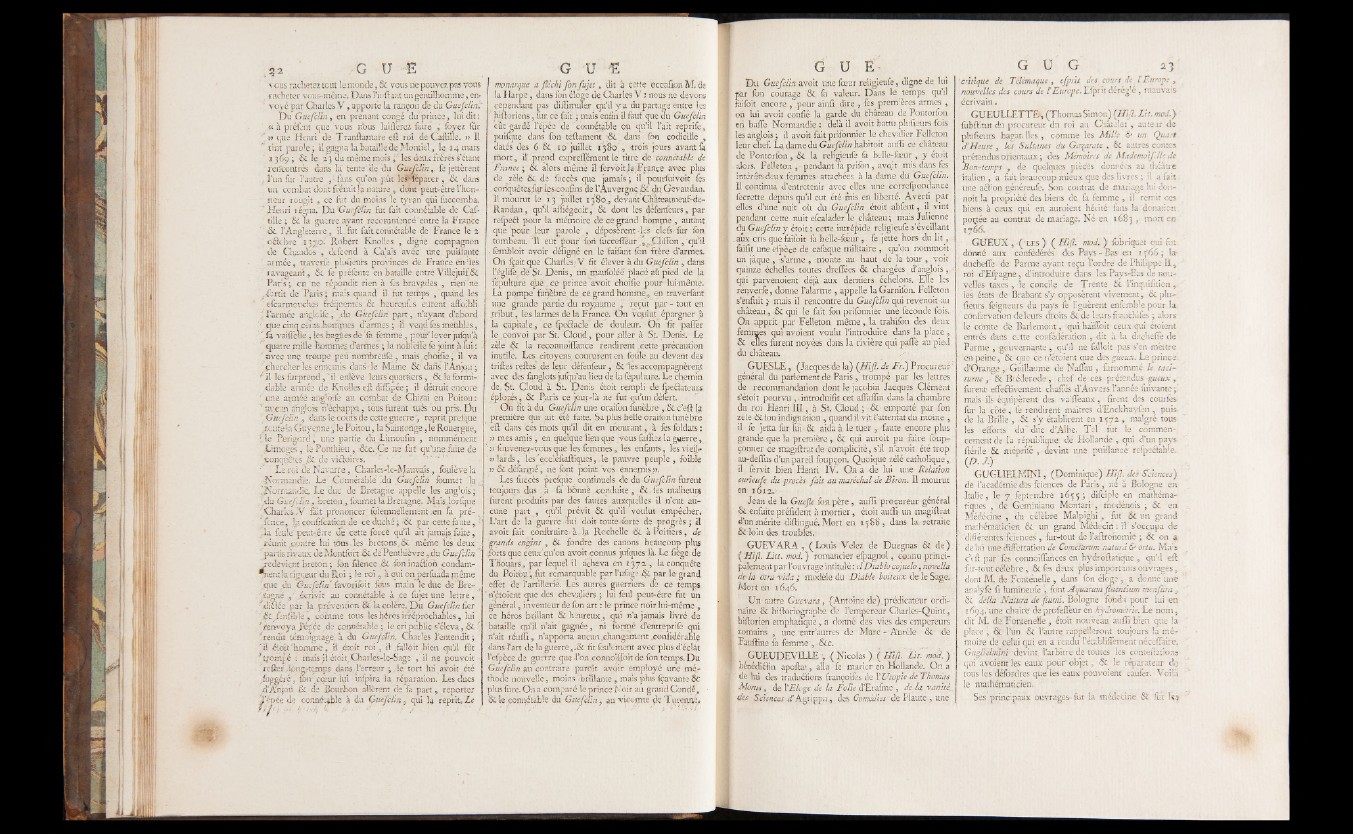 22 G U E
vous rachetez tout le monde, & vous ne pouvez pas vous
racheter vous-même. Dans l'instant un gentilhomme, en-
voyé par Charles V, apporte la rançon de du Guesclin.
Du Guesclin, en prenant congé du prince, lui dit:
« à présent que vous nous laisserez faire , soyez sûr
» que Henri de Transtamare est roi de Castille. » Il
tint parole; il gagna la bataille de Montiel, le 14 mars
1369, & le 23 du même mois, les deux frères s'étant
rencontrés dans la tente de du Guesclin, se jettèrent
l'un sur l'autre , sans qu'on pût les séparer, & dans
un combat dont frémit la nature, dont peut-être l'hon-
neur rougit , ce fut du moins le tyran qui succomba.
Henri régna. Du Guesclin fut fait connétable de Cas-
tille ; & la guerre ayant recommencé entre la France
& l'Angleterre, il fut fait connétable de France le 2
octobre 1370. Robert Knolles , digne compagnon
de Chandos , descend à Calais avec une puissante
armée, traverse plusieurs provinces de France en les
ravageant, & se présente en bataille entre Villejuif &
Paris; on ne répondit rien à ses bravades , rien ne
sortit de Paris; mais quand il fut temps , quand les
escarmouches fréquentes & heureuses eurent affoibli
l'armée angloise , du Guesclin part, n'ayant d'abord
que cinq cens hommes d'armes ; il vend ses meubles,
sa vaisselle, les bagues de sa femme, pour lever jusqu'à
quatre mille hommes d'armes ; la noblesse se joint à lui:
avec une troupe peu nombreuse, mais choisie, il va
chercher les ennemis dans le Maine & dans l'Anjou;
il les surprend, il enlève leurs quartiers, & la formi-
dable armée de Knolles est dissipée; il détruit encore
une armée angloise au combat de Chizai en Poitou:
aucun anglois n'échappa, tous furent tués ou pris. Du
Guesclin, dans le cours de cette guerre, reprit presque
toute la Guyenne, le Poitou, la Saintonge, le Rouergue,
le Périgord, une partie du Limousin , nommément
Limoges , le Ponthieu, &c. Ce ne fut qu'une suite de
conquêtes & de victoires.
Le roi de Navarre, Charles-le-Mauvais, soulève la
Normandie. Le Connétable du Guesclin soumet la
Normandie. Le duc de Bretagne appelle les anglois;
du Guesclin, breton, soumet la Bretagne. Mais lorsque
Charles V fait prononcer solemnellement en sa pré-
sence, la confiscation de ce duché; & par cette faute,
la seule peut-être de cette force qu'il ait jamais faite,
réunit contre lui tous les bretons & même les deux
partis rivaux de Montfort & de Penthièvre, du Guesclin
redevient breton; son silence & son inaction condam-
nent la rigueur du Roi; le roi, à qui on persuada même
que du Guesclin favorisoit sous main le duc de Bre-
tagne , écrivit au connétable à ce sujet une lettre,
dictée par la prévention & la colère. Du Guesclin fier
& sensible, comme tous les héros irréprochables, lui
renvoya l'épée de connétable; le cri public s'éleva, &
rendit témoignage à du Guesclin. Charles l'entendit;
il étoit homme , il étoit roi, il falloit bien qu'il fût
trompé ; mais il étoit Charles-le-Sage , il ne pouvoit
rester long-temps dans l'erreur; le tort lui avoit été
suggéré, son cœur lui inspira la réparation. Les ducs
d'Anjou & de Bourbon allèrent de sa part, reporter
l'épée de connétable à du Guesclin, qui la reprit. Le
G U E
monarque a fléchi son sujet , dit à cette occasion M. de
la Harpe, dans son éloge de Charles V : nous ne devons
cependant pas dissimuler qu'il y a du partage entre les
historiens, sur ce fait; mais enfin il faut que du Guesclin
eût gardé l'épée de connétable ou qu'il l'ait reprise,
puisque dans son testament & dans son codicille ,
datés des 6 & 10 juillet 1380 , trois jours avant sa
mort, il prend expressément le titre de connétable de
France ; & alors même il servoit la France avec plus
de zèle & de succès que jamais; il poursuivoit ses
conquêtes sur les confins de l'Auvergne & du Gevaudan.
Il mourut le 13 juillet 1380, devant Châteauneuf-de-
Randan, qu'il assiégeoit, & dont les défenseurs, par
respect pour la mémoire de ce grand homme , autant
que pour leur parole , déposèrent les clefs sur son
tombeau. Il eut pour son successeur Clisson, qu'il
sembloit avoir désigné en le faisant son frère d'armes.
On sçait que Charles V fit élever à du Guesclin, dans
l'église de St. Denis, un mausolée placé au pied de la
sépulture que ce prince avoit choisie pour lui-même.
La pompe funèbre de ce grand homme, en traversant
une grande partie du royaume , reçut par - tout en
tribut, les larmes de la France. On voulut épargner à
la capitale, ce spectacle de douleur. On fit passer
le convoi par St. Cloud, pour aller à St. Denis. Le
zèle & la reconnoissance rendirent cette précaution
inutile. Les citoyens coururent en foule au devant des
tristes restes de leur défenseur, & les accompagnèrent
avec des sanglots jusqu'au lieu de la sépulture. Le chemin
de St. Cloud à St. Denis étoit rempli de spectateurs
éplorés, & Paris ce jour-là ne fut qu'un désert.
On fit à du Guesclin une oraison funèbre, & c'est la
première qui ait été faite. Sa plus belle oraison funèbre
est dans ces mots qu'il dit en mourant, à ses soldats:
« mes amis, en quelque lieu que vous fassiez la guerre,
» souvenez-vous que les femmes, les enfants, les vieil-
» lards, les ecclésiastiques, le pauvre peuple, foible
» & désarmé, ne sont point vos ennemis ».
Les succès presque continuels de du Guesclin furent
toujours dus à sa bonne conduite, & les malheurs
furent produits par des fautes auxquelles il n'eut au-
cune part , qu'il prévit & qu'il voulut empêcher.
L'art de la guerre lui doit toute sorte de progrès; il
avoit fait construire à la Rochelle & à Poitiers, de
grands engins , & fondre des canons beaucoup plus
forts que ceux qu'on avoit connus jusques là. Le siège de
Thouars, par lequel il acheva en 1372, la conquête
du Poitou, fut remarquable par l'usage & par le grand
effet de l'artillerie. Les autres guerriers de ce temps
n'étoient que des chevaliers ; lui seul peut-être fut un
général, inventeur de son art: le prince noir lui-même ,
ce héros brillant & heureux, qui n'a jamais livré de
bataille qu'il n'ait gagnée, ni formé d'entreprise qui
n'ait réussi, n'apporta aucun changement considérable
dans l'art de la guerre, & fit seulement avec plus d'éclat
l'espèce de guerre que l'on connoissoit de son temps. Du
Guesclin au contraire paroît avoir employé une mé-
thode nouvelle, moins brillante, mais plus sçavante &
plus sûre. On a comparé le prince Noir au grand Condé,
& le connétable du Guesclin, au vicomte de Turenne.
G U E
Du Guesclin avoit une sœur religieuse, digne de lui
par son courage & sa valeur. Dans le temps qu'il
faisoit encore , pour ainsi dire , ses premières armes ,
on lui avoit confié la garde du château de Pontorson
en basse Normandie : delà il avoit battu plusieurs fois
les anglois ; il avoit fait prisonnier le chevalier Felleton
leur chef. La dame du Guesclin habitoit aussi ce château
de Pontorson , & la religieuse sa belle-sœur , y étoit
alors. Felleton , pendant sa prison, avoit mis dans ses
intérêts deux femmes attachées à la dame du Guesclin.
Il continua d'entretenir avec elles une correspondance
secrette depuis qu'il eut été mis en liberté. Averti par
elles d'une nuit où du Guesclin étoit absent , il vint
pendant cette nuit escalader le château; mais Julienne
du Guesclin y étoit: cette intrépide religieuse s'éveillant
aux cris que faisoit sa belle-sœur , se jette hors du lit ,
saisit une espèce de casaque militaire , qu'on nommoit
un jâque , s'arme , monte au haut de la tour , voit
quinze échelles toutes dressées & chargées d'anglois ,
qui parvenoient déjà aux derniers échelons. Elle les
renverse, donne l'alarme , appelle la Garnison. Felleton
s'enfuit ; mais il rencontre du Guesclin qui revenoit au
château, & qui le fait son prisonnier une seconde fois.
On apprit par Felleton même, la trahison des deux
femmes qui avoient voulu l'introduire dans la place,
& elles furent noyées dans la rivière qui passe au pied
du château.
GUESLE , (Jacques de la) (Hist. de Fr.) Procureur
général du parlement de Paris , trompé par les lettres
de recommandation dont le jacobin Jacques Clément
s'étoit pourvu , introduisit cet assassin dans la chambre
du roi Henri III , à St. Cloud ; & emporté par son
zèle & son indignation , quand il vit l'attentat du moine ,
il se jetta sur lui & aida à le tuer , faute encore plus
grande que la première , & qui auroit pu faire soup-
çonner ce magistrat de complicité, s'il n'avoit été trop
au-dessus d'un pareil soupçon. Quoique zélé catholique,
il servit bien Henri IV. On a de lui une Relation
curieuse du procès fait au maréchal de Biron. Il mourut
en 1612.
Jean de la Guesle son père , aussi procureur général
& ensuite président à mortier , étoit aussi un magistrat
d'un mérite distingué. Mort en 1588, dans la retraite
& loin des troubles.
GUEVARA , ( Louis Velez de Duegnas & de )
( Hist. Litt. mod. ) romancier espagnol , connu princi-
palement par l'ouvrage intitulé: il Diablo cojuelo, novella
de la otra vida ; modèle du Diable boiteux de le Sage.
Mort en 1646.
Un autre Guevara , (Antoine de) prédicateur ordi-
naire & historiographe de l'empereur Charles-Quint,
historien emphatique , a donné des vies des empereurs
romains , une entr'autres de Marc - Aurèle & de
Faustine sa femme, &c.
GUEUDEVILLE , ( Nicolas ) ( Hist. Lit. mod. )
bénédictin apostat, alla se marier en Hollande. On a
de lui des traductions françoises de l'Utopie de Thomas
Morus, de l'Eloge de la Folie d'Erasme , de la vanité
des Sciences d'Agrippa, des Comédies de Plaute , une
G U G 23
critique de Télémaque , esprit des cours de l'Europe ,
nouvelles des cours de l'Europe. Esprit déréglé, mauvais
écrivain.
GUEULLETTE, (Thomas Simon) (Hist. Lit. mod.)
substitut du procureur du roi au Châtelet , auteur de
plusieurs bagatelles , comme les Mille & un Quart
d'Heure , les Sultanes du Guzarate , & autres contes
prétendus orientaux ; des Mémoires de Mademoiselle de
Bon-temps , de quelques pièces données au théâtre
italien , a fait beaucoup mieux que des livres ; il a fait
une action généreuse. Son contrat de mariage lui don-
noit la propriété des biens de sa femme , il remit ces
biens à ceux qui en auroient hérité sans la donation
portée au contrat de mariage. Né en 1683 , mort en
1766.
GUEUX , ( LES ) ( Hist. mod. ) sobriquet qui fut
donné aux confédérés des Pays - Bas en 1566 ; la
duchesse de Parme ayant reçu l'ordre de Philippe II,
roi d'Espagne, d'introduire dans les Pays-Bas de nou-
velles taxes , le concile de Trente & l'inquisition ,
les états de Brabant s'y opposèrent vivement, & plu-
sieurs seigneurs du pays se liguèrent ensemble pour la
conservation de leurs droits & de leurs franchises ; alors
le comte de Barlemont , qui haïssoit ceux qui étoient
entrés dans cette confédération , dit à la duchesse de
Parme , gouvernante , qu'il ne falloit pas s'en mettre
en peine, & que ce n'étoient que des gueux. Le prince
d'Orange , Guillaume de Nassau , surnommé le taci-
turne , & Bréderode, chef de ces prétendus gueux ,
furent effectivement chassés d'Anvers l'année suivante ;
mais ils équipèrent des vaisseaux , firent des courses
sur la côte , se rendirent maîtres d'Enckhuysen , puis
de la Brille , & s'y établirent en 1572 , malgré tous
les efforts du duc d'Albe. Tel fut le commen-
cement de la république de Hollande , qui d'un pays
stérile & méprisé , devint une puissance respectable.
(D. J.)
GUGLIELMINI , (Dominique) (Hist. des Sciences)
de l'académie des sciences de Paris , né à Bologne en
Italie , le 7 septembre 1655 ; disciple en mathéma-
tiques , de Geminiano Montari , modénois ; & en
Médecine , du célèbre Malpighi , fut & un grand
mathématicien & un grand Médecin : il s'occupa de
différentes sciences , sur-tout de l'astronomie ; & on a
de lui une dissertation de Cometarum naturâ & ortu. Mais
c'est par ses connoissances en hydrostatique , qu'il est
sur-tout célèbre , & ses deux plus importans ouvrages ,
dont M. de Fontenelle , dans son éloge, a donné une
analyse si lumineuse , sont Aquarum fluentium mensura,
& della Natura de fiumi. Bologne fonda pour lui en
1694. une chaire de professeur en hydrométrie. Le nom ,
dit M. de Fontenelle , étoit nouveau aussi bien que la
place , & l'un & l'autre rappelleront toujours la mé-
moire de celui qui en a rendu l'établissement nécessaire.
Guglielmini devint l'arbitre de toutes les contestations
qui avoient les eaux pour objet , & le réparateur de
tous les désordres que les eaux pouvoient causer. Voilà
le mathématicien.
Ses principaux ouvrages sur la médecine & sur les